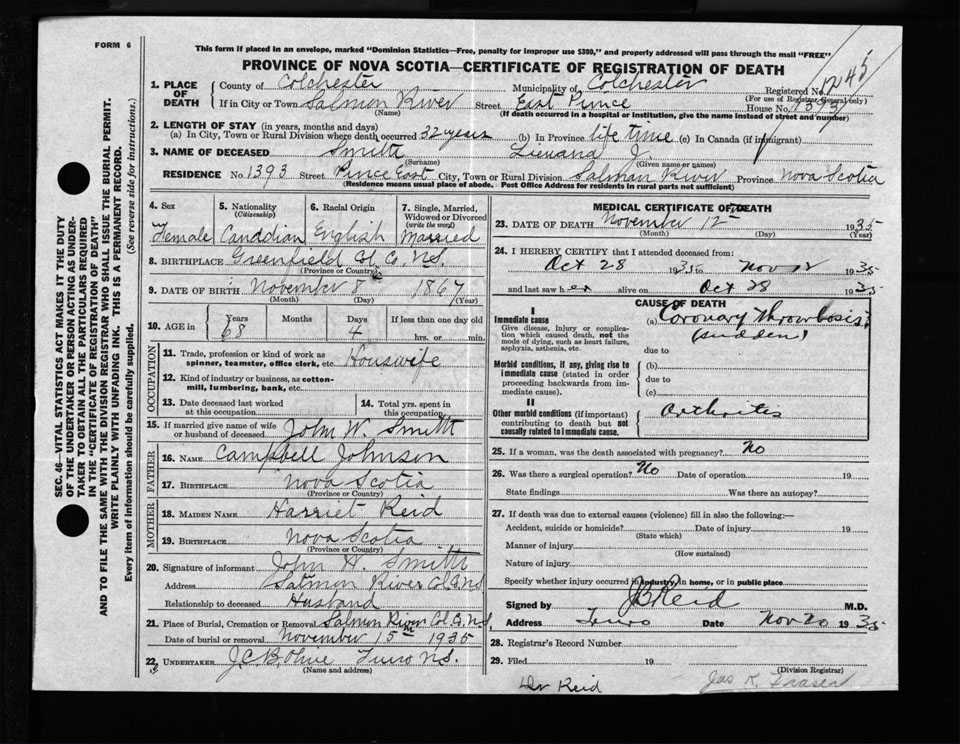 FORM 6
This form if placed in an envelope, marked "Dominion Statistics—Free, penalty for improper use $300," and properly addressed will pass through the mail "FREE"
PROVINCE OF NOVA SCOTIA—CERTIFICATE OF REGISTRATION OF DEATH
1. PLACE OF DEATH
County of Colchester Municipality of Colchester Registered No.
(For use of Registrar General only)
If in City or Town Salmon River Street East Prince House No. 1393
(Name) (If death occurred in a hospital or institution, give the name instead of street and number)
2. LENGTH OF STAY (in years, months and days)
(a) In City, Town or Rural Division where death occurred 32 years (b) In Province life time (c) In Canada (if immigrant)
3. NAME OF DECEASED Smith J.
(Surname) (Given name or names)
RESIDENCE No. 1393 Street Prince East City, Town or Rural Division Salmon River Province Nova Scotia
(Residence means usual place of abode. Post Office Address for residents in rural parts not sufficient)
SEC. 46—VITAL STATISTICS ACT MAKES IT THE DUTY
OF THE UNDERTAKER OR PERSON ACTING AS UNDER-
TAKER TO OBTAIN ALL THE PARTICULARS REQUIRED
IN THE "CERTIFICATE OF REGISTRATION OF DEATH"
AND TO FILE THE SAME WITH THE DIVISION REGISTRAR WHO SHALL ISSUE THE BURIAL PERMIT.
WRITE PLAINLY WITH UNFADING INK. THIS IS A PERMANENT RECORD.
Every item of information should be carefully supplied. (See reverse side for instructions.)
4. Sex 5. Nationality (Citizenship) 6. Racial Origin 7. Single, Married, Widowed or Divorced (write the word)
Female Canadian English Married
8. BIRTHPLACE Greenfield Col. Co. N.S.
(Province or Country)
9. DATE OF BIRTH November 8 1867
(Month) (Day) (Year)
10. AGE in Years Months Days If less than one day old
68 4 hrs. or min.
OCCUPATION
11. Trade, profession or kind of work as spinner, teamster, office clerk, etc. Houswife
12. Kind of industry or business, as cotton-mill, lumbering, bank, etc.
13. Date deceased last worked at this occupation 14. Total yrs. spent in this occupation
15. If married give name of wife or husband of deceased John W. Smith
FATHER
16. NAME Campbell Johnson
17. BIRTHPLACE Nova Scotia
(Province or Country)
MOTHER
18. MAIDEN NAME Harriet Reid
19. BIRTHPLACE Nova Scotia
(Province or Country)
20. Signature of informant John W. Smith
Address Salmon River Col. Co. N.S
Relationship to deceased Husband
21. Place of Burial, Cremation or Removal Salmon River Col. Co. N.S.
Date of burial or removal November 15th 1935
22. UNDERTAKER Truro N.S.
(Name and address)
MEDICAL CERTIFICATE OF DEATH
23. DATE OF DEATH November 12th 1935
(Month) (Day) (Year)
24. I HEREBY CERTIFY that I attended deceased from:
Oct 28 1935 to Nov 12 1935
and last saw her alive on Oct 28 1935
CAUSE OF DEATH
I
Immediate cause
Give disease, injury or complication which caused death, not the mode of dying, such as heart failure, asphyxia, asthenia, etc.
(a) Coronary Thrombosis
(sudden)
due to
Morbid conditions, if any, giving rise to immediate cause (stated in order proceeding backwards from immediate cause).
(b)
due to
(c)
II
Other morbid conditions (if important) contributing to death but not causally related to immediate cause.
Arthritis
25. If a woman, was the death associated with pregnancy? No
26. Was there a surgical operation? No Date of operation 19
State findings Was there an autopsy?
27. If death was due to external causes (violence) fill in also the following:—
Accident, suicide or homicide? Date of injury 19
(State which)
Manner of injury
(How sustained)
Nature of injury
Specify whether injury occurred in industry, in home, or in public place
Signed by J B Reid M.D.
Address Truro Date Nov 20 1935
28. Registrar's Record Number
29. Filed 19
(Division Registrar)
Dr Reid
Jas K. Fraser